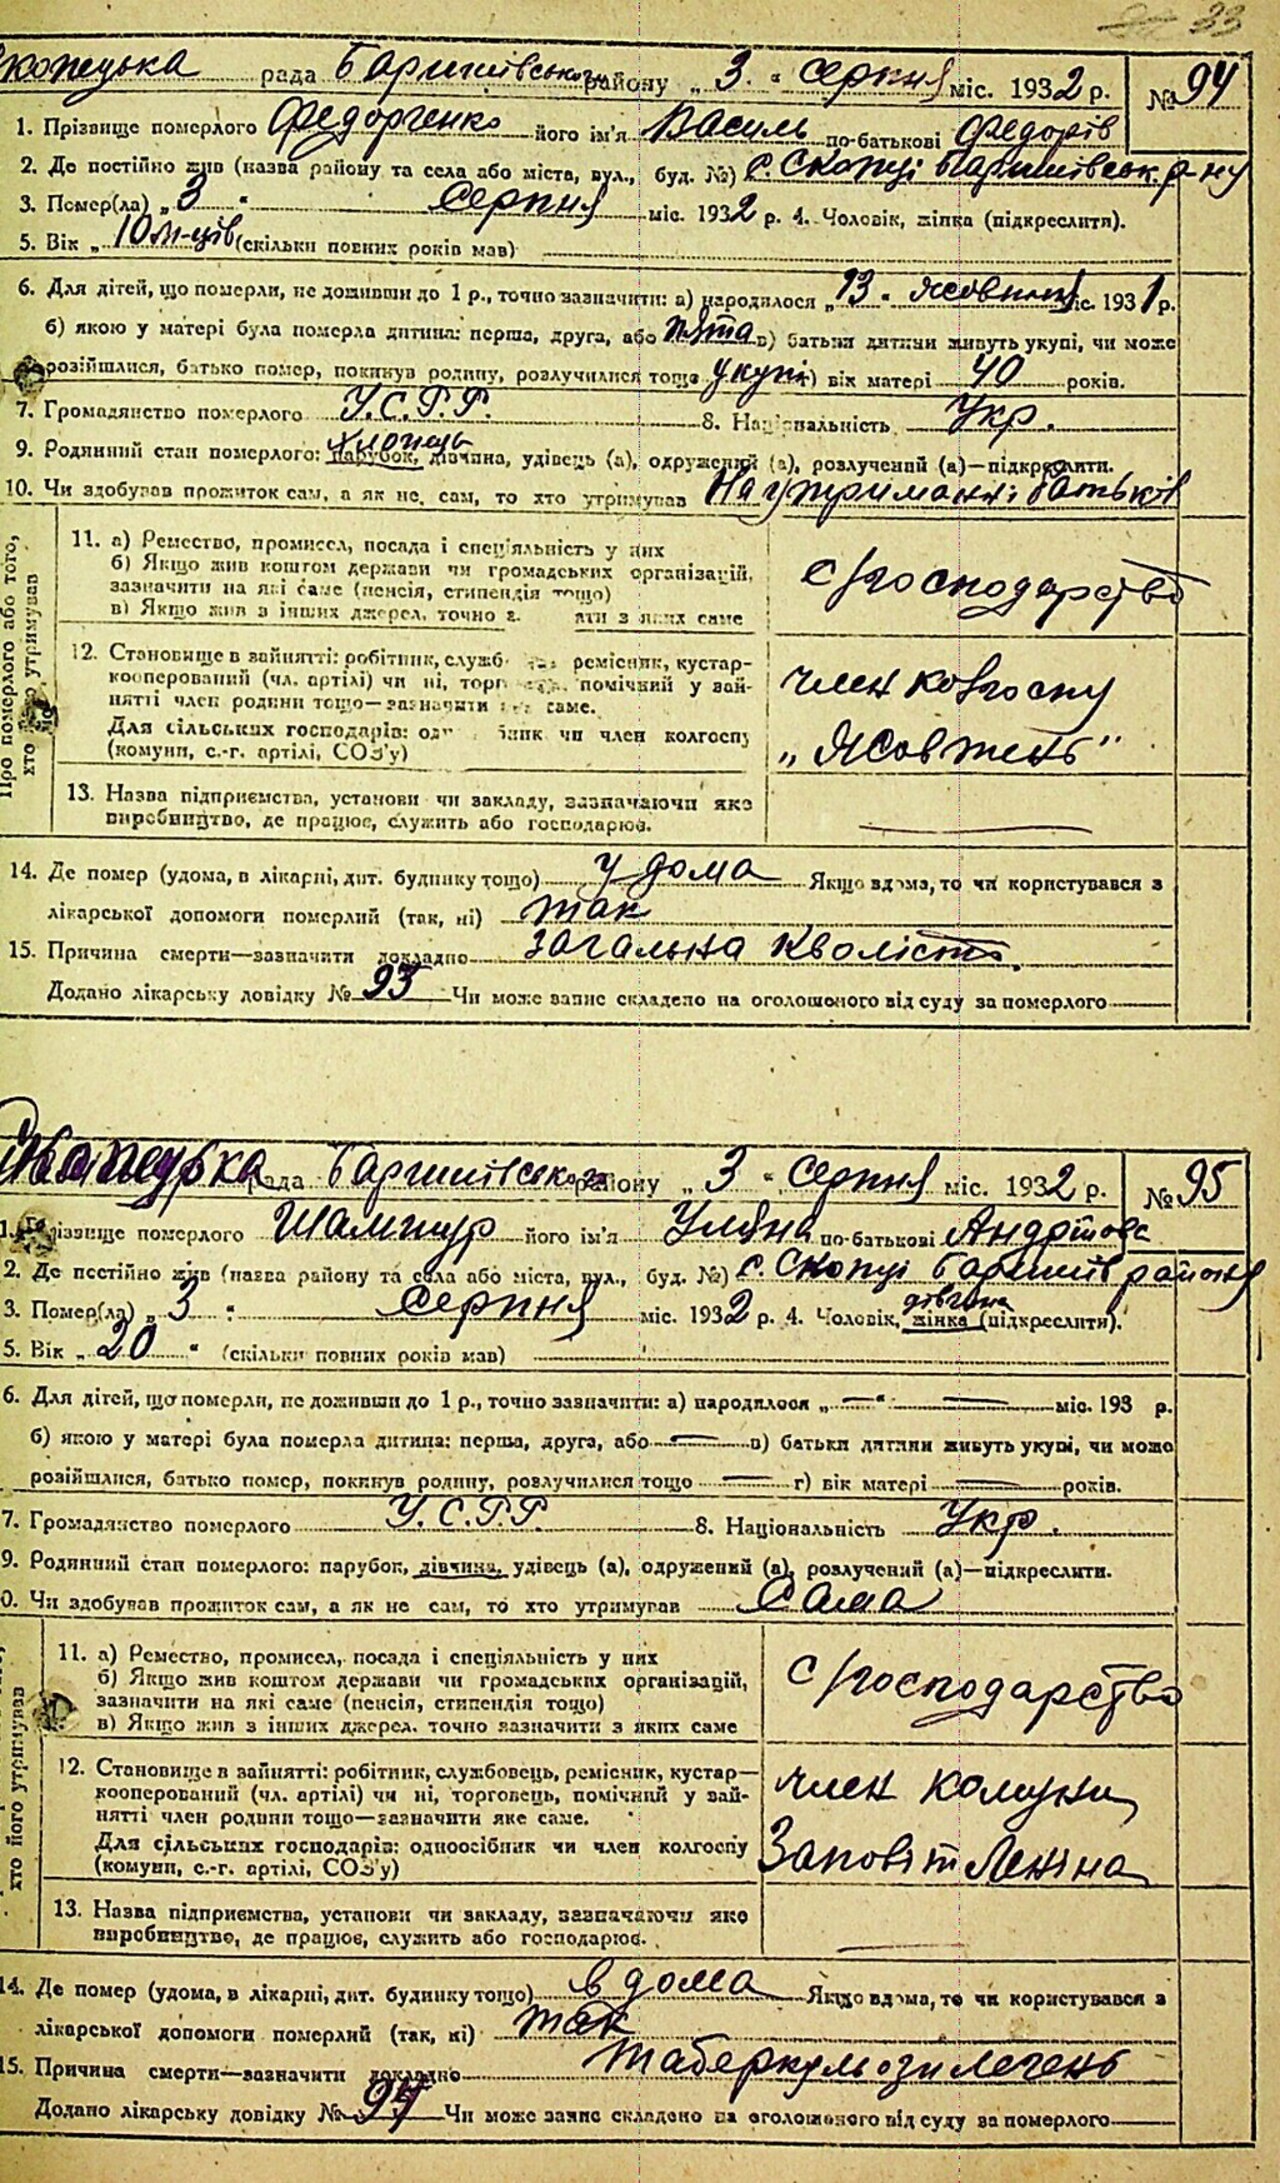 33
Скопецька рада Баришівського району „ 3 " серпня міс. 1932 р. № 94
1. Прізвище померлого Федорченко його ім'я Василь по-батькові Федорів
2. Де постійно жив (назва району та села або міста, вул., буд. №) с. Скопці Баришівськ. р-ну
3. Помер(ла) „ 3 " серпня міс. 1932 р. 4. Чоловік, жінка (підкреслити).
5. Вік „ 10 м-ців (скільки повних років мав)
6. Для дітей, що померли, не доживши до 1 р., точно зазначити: а) народилося „ 13 " жовтня міс. 1931 р.
б) якою у матері була померла дитина: перша, друга, або п'ята в) батьки дитини живуть укупі, чи може
розійшлися, батько помер, покинув родину, розлучилися тощо укупі г) вік матері 40 років.
7. Громадянство померлого У.С.Р.Р. 8. Національність Укр.
хлопець
9. Родинний стан померлого: парубок, дівчина, удівець (а), одружений (а), розлучений (а)—підкреслити.
10. Чи здобував прожиток сам, а як не сам, то хто утримував На утриманні батьків
Про померлого або того, хто його утримував
11. а) Ремество, промисел, посада і спеціяльність у них
б) Якщо жив коштом держави чи громадських організацій,
зазначити на які саме (пенсія, стипендія тощо)
в) Якщо жив з інших джерел, точно з. ати з яких саме
с/господарство
12. Становище в зайнятті: робітник, служб ремісник, кустар-
кооперований (чл. артілі) чи ні, торг помічний у зай-
нятті член родини тощо—зазначити яке саме.
Для сільських господарів: од бник чи член колгоспу
(комуни, с.-г. артілі, СОЗ'у)
член ковгоспу
„Жовтень"
13. Назва підприємства, установи чи закладу, зазначаючи яке
виробництво, де працює, служить або господарює.
14. Де помер (удома, в лікарні, дит. будинку тощо) у дома Якщо вдома, то чи користувався з
лікарської допомоги померлий (так, ні) так
15. Причина смерти—зазначити докладно загальна кволість.
Додано лікарську довідку № 93 Чи може запис складено на оголошеного від суду за померлого
Скопецька рада Баришівського району „ 3 " серпня міс. 1932 р. № 95
1. Прізвище померлого Шампур його ім'я Уляна по-батькові
2. Де постійно жив (назва району та села або міста, вул., буд. №) с. Скопці Баришів району
дівчина
3. Помер(ла) „ 3 " серпня міс. 1932 р. 4. Чоловік, жінка (підкреслити).
5. Вік „ 20 " (скільки повних років мав)
6. Для дітей, що померли, не доживши до 1 р., точно зазначити: а) народилося „ — " — міс. 193 р.
б) якою у матері була померла дитина: перша, друга, або — в) батьки дитини живуть укупі, чи може
розійшлися, батько помер, покинув родину, розлучилися тощо — г) вік матері — років.
7. Громадянство померлого У.С.Р.Р. 8. Національність Укр.
9. Родинний стан померлого: парубок, дівчина, удівець (а), одружений (а), розлучений (а)—підкреслити.
0. Чи здобував прожиток сам, а як не сам, то хто утримував Сама
хто його утримував
11. а) Ремество, промисел, посада і спеціяльність у них
б) Якщо жив коштом держави чи громадських організацій,
зазначити на які саме (пенсія, стипендія тощо)
в) Якщо жив з інших джерел, точно зазначити з яких саме
с/господарство
12. Становище в зайнятті: робітник, службовець, ремісник, кустар—
кооперований (чл. артілі) чи ні, торговець, помічний у зай-
нятті член родини тощо—зазначити яке саме.
Для сільських господарів: одноосібник чи член колгоспу
(комуни, с.-г. артілі, СОЗ'у)
член комуни
Заповіт Леніна
13. Назва підприємства, установи чи закладу, зазначаючи яке
виробництво, де працює, служить або господарює.
14. Де помер (удома, в лікарні, дит. будинку тощо) в дома Якщо вдома, то чи користувався з
лікарської допомоги померлий (так, ні) так
15. Причина смерти—зазначити докладно таберкульози легень
Додано лікарську довідку № 94 Чи може запис складено на оголошеного від суду за померлого